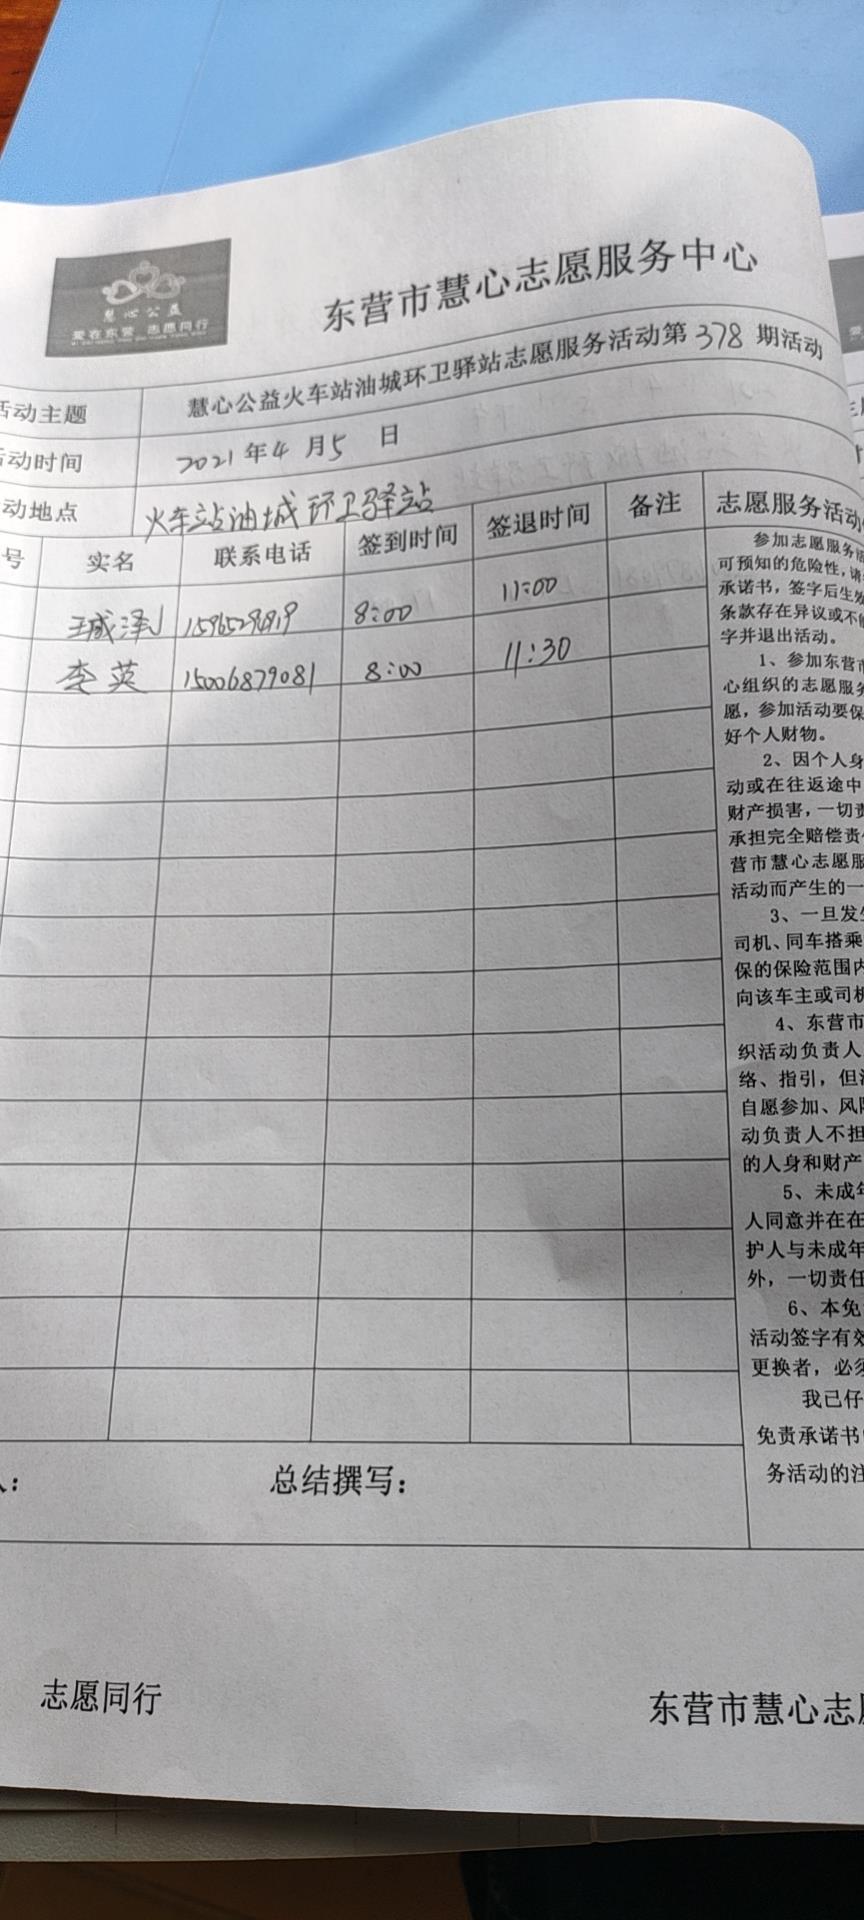 慧心公益
爱在东营 志愿同行
东营市慧心志愿服务中心
活动主题 慧心公益火车站油城环卫驿站志愿服务活动第378期活动
活动时间 2021年4月5日
动地点 火车站油城环卫驿站
号 实名 联系电话 签到时间 签退时间 备注 志愿服务活动
8:00 11:00
李英 15006879081 8:00 11:30
参加志愿服务活
可预知的危险性,请
承诺书,签字后生效
条款存在异议或不
字并退出活动。
1、参加东营市
心组织的志愿服务
愿,参加活动要保
好个人财物。
2、因个人身
动或在往返途中
财产损害,一切责
承担完全赔偿责
营市慧心志愿服
活动而产生的一
3、一旦发生
司机、同车搭乘
保的保险范围内
向该车主或司机
4、东营市
织活动负责人
络、指引,但
自愿参加、风险
动负责人不担
的人身和财产
5、未成年
人同意并在在
护人与未成年
外,一切责任
6、本免
活动签字有效
更换者,必须
我已仔
免责承诺书
务活动的注
人: 总结撰写:
志愿同行 东营市慧心志愿